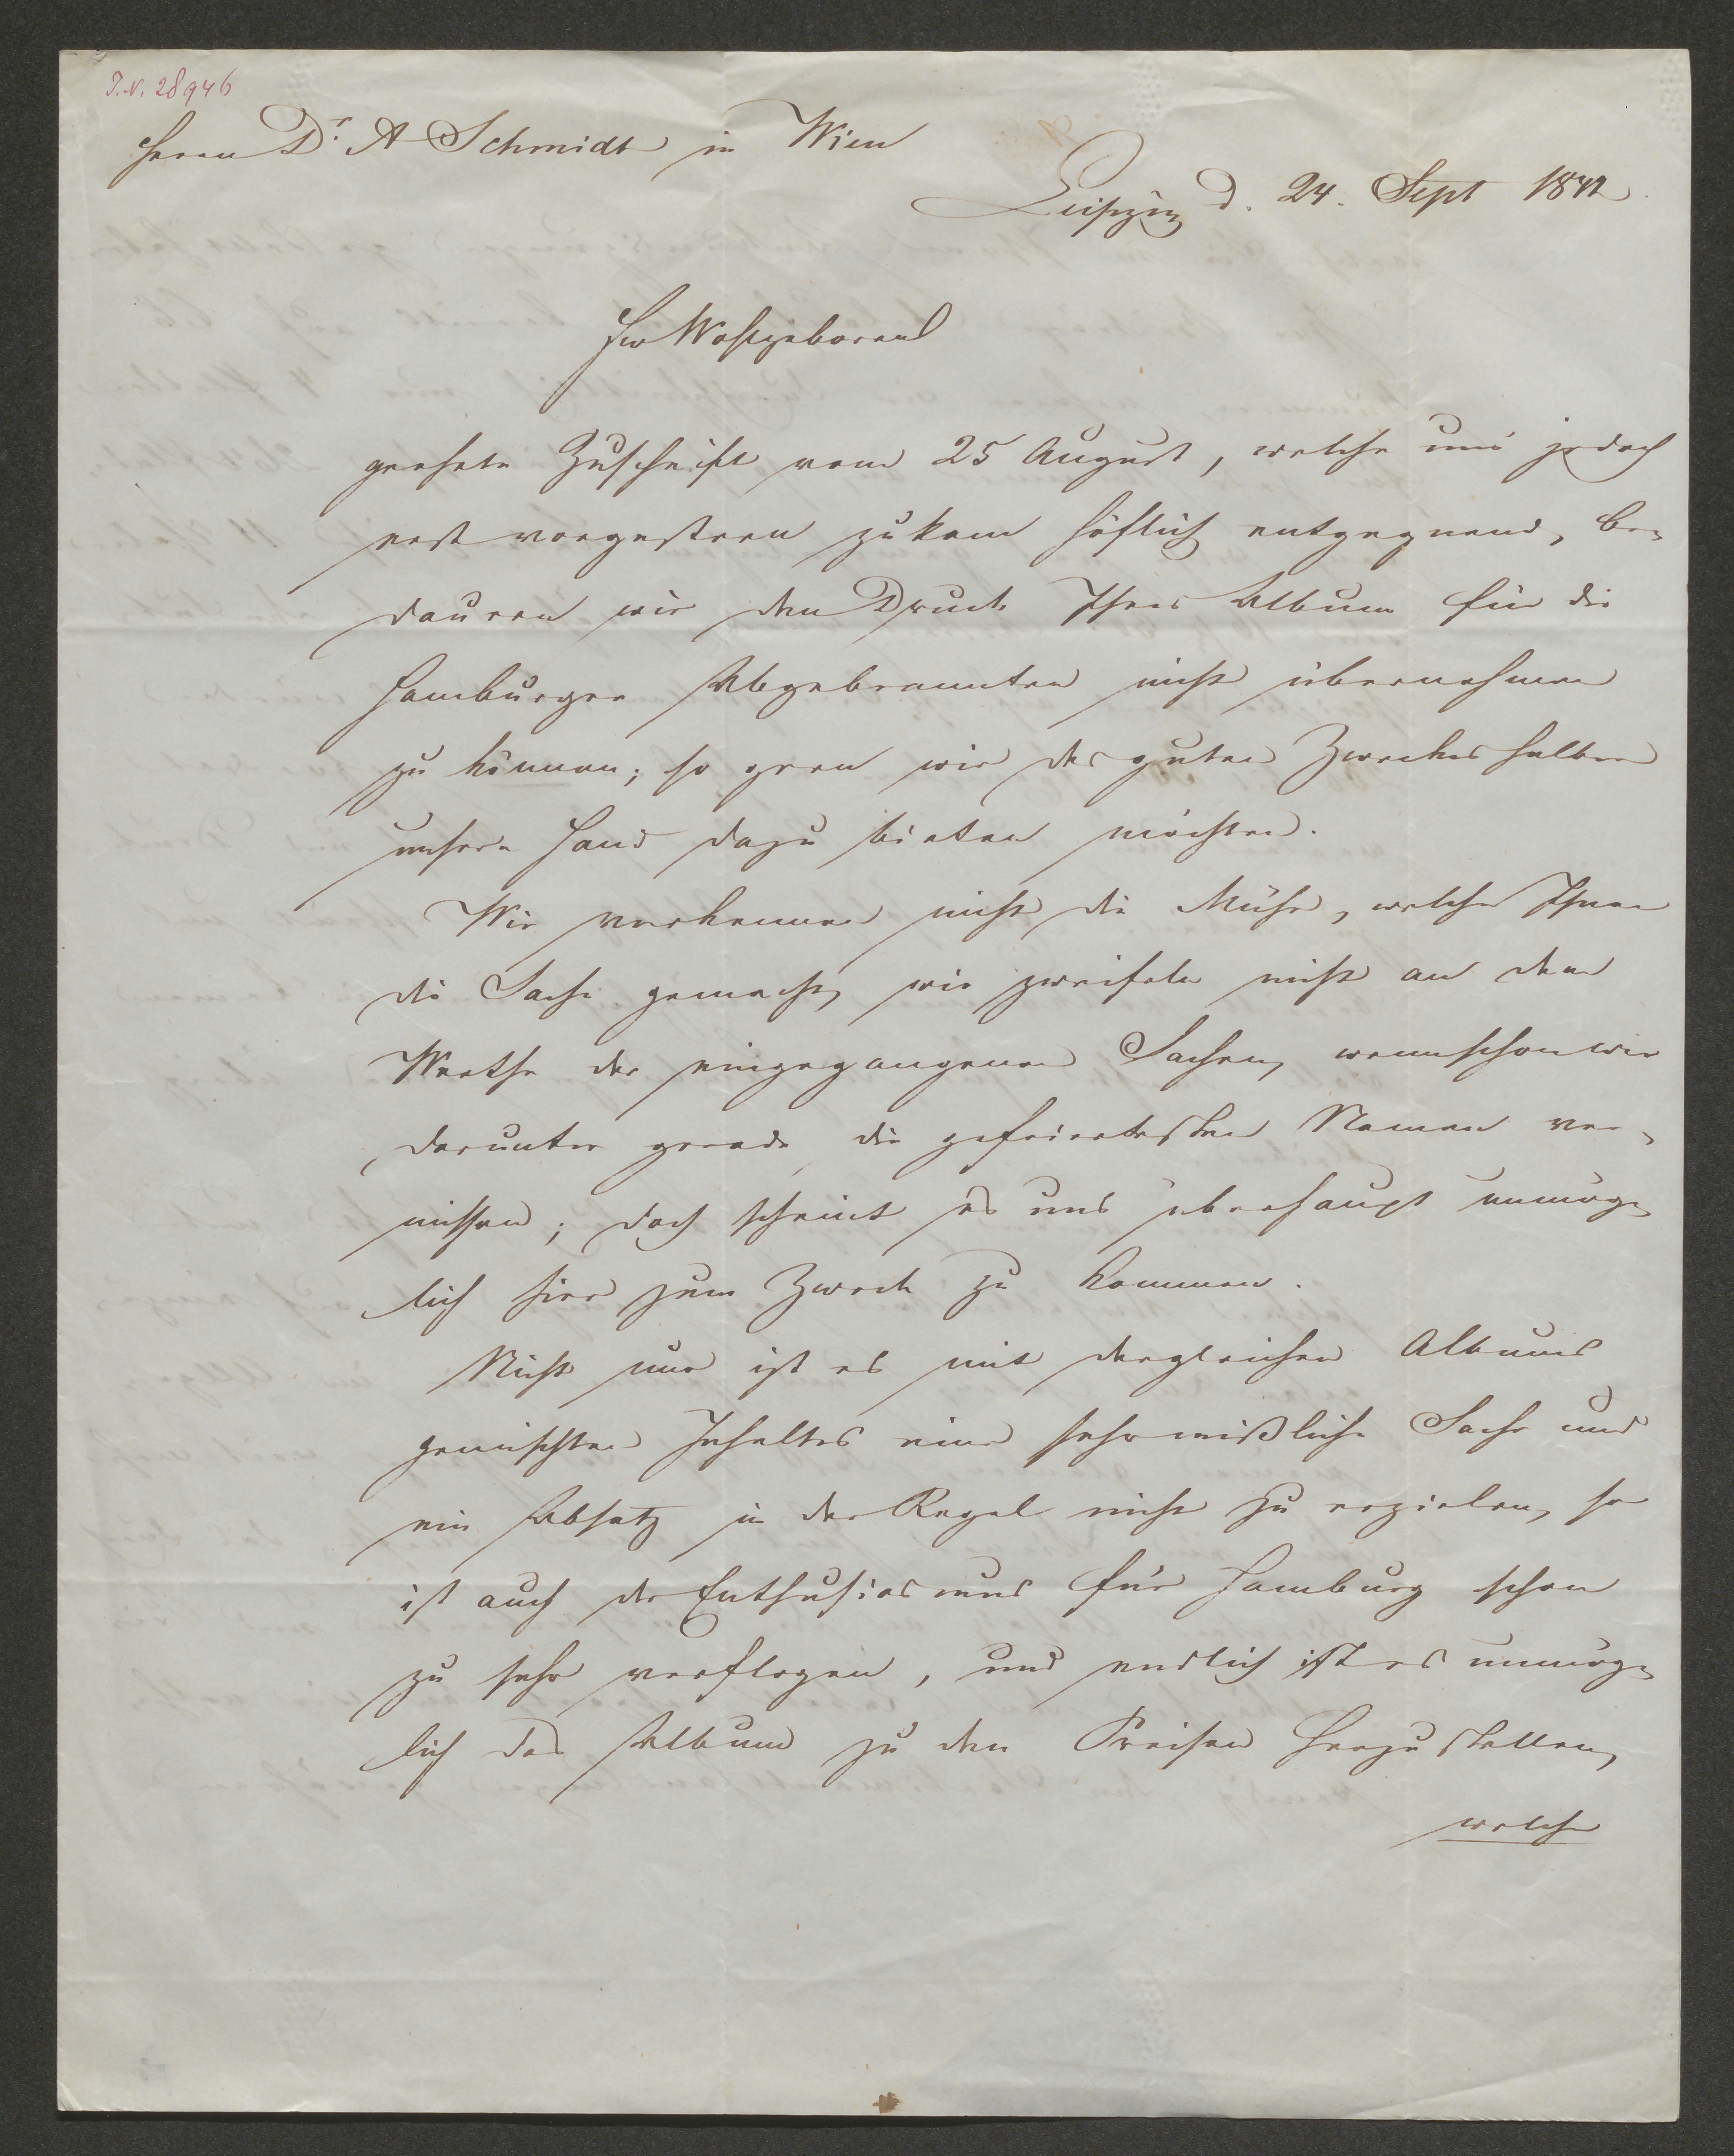 I.N. 28946
Herrn Dr. A Schmidt in Wien
Leipzig d. 24. Sept 1842
Ew Wohlgeboren
geehrte Zuschrift vom 25 August, welche uns jedoch
erst vorgestern zukam höflich entgegnend, be-
dauren wir den Druck Ihres Album für die
Hamburger Abgebrannten nicht übernehmen
zu können; so gern wir des guten Zweckes halber
unsere Hand dazu bieten möchten.
Wir verkennen nicht die Mühe, welche Ihnen
die Sache gemacht, wir zweifeln nicht an dem
Werthe der eingegangenen Sachen, wennschon wir
darunter gerade die gefeiertesten Namen ver-
missen; doch scheint es uns überhaupt unmög-
lich hier zum Zweck zu kommen.
Nicht nur ist es mit dergleichen Albums
gemischten Inhaltes eine sehr mißliche Sache und
ein Absatz in der Regel nicht zu erzielen, so
ist auch der Enthusiasmus für Hamburg schon
zu sehr verflogen, und endlich ist es unmög-
lich das Album zu den Preisen herzustellen,
welche